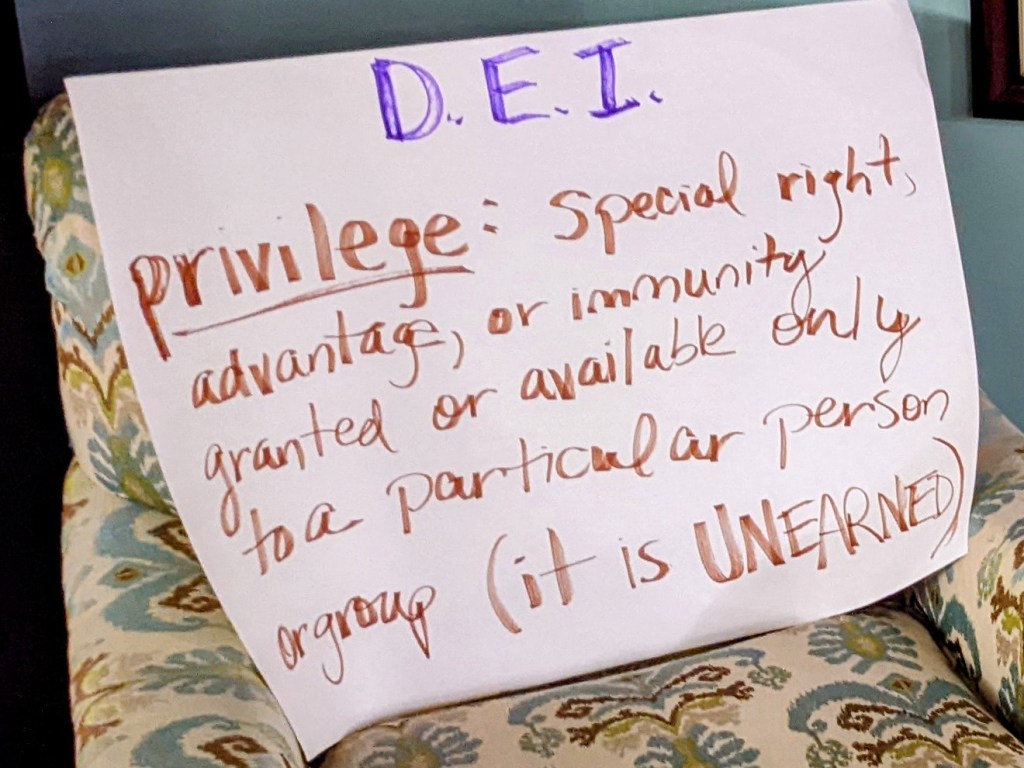 D.E.I.
privilege: special right,
advantage, or immunity
granted or available only
to a particular person
or group (it is UNEARNED)